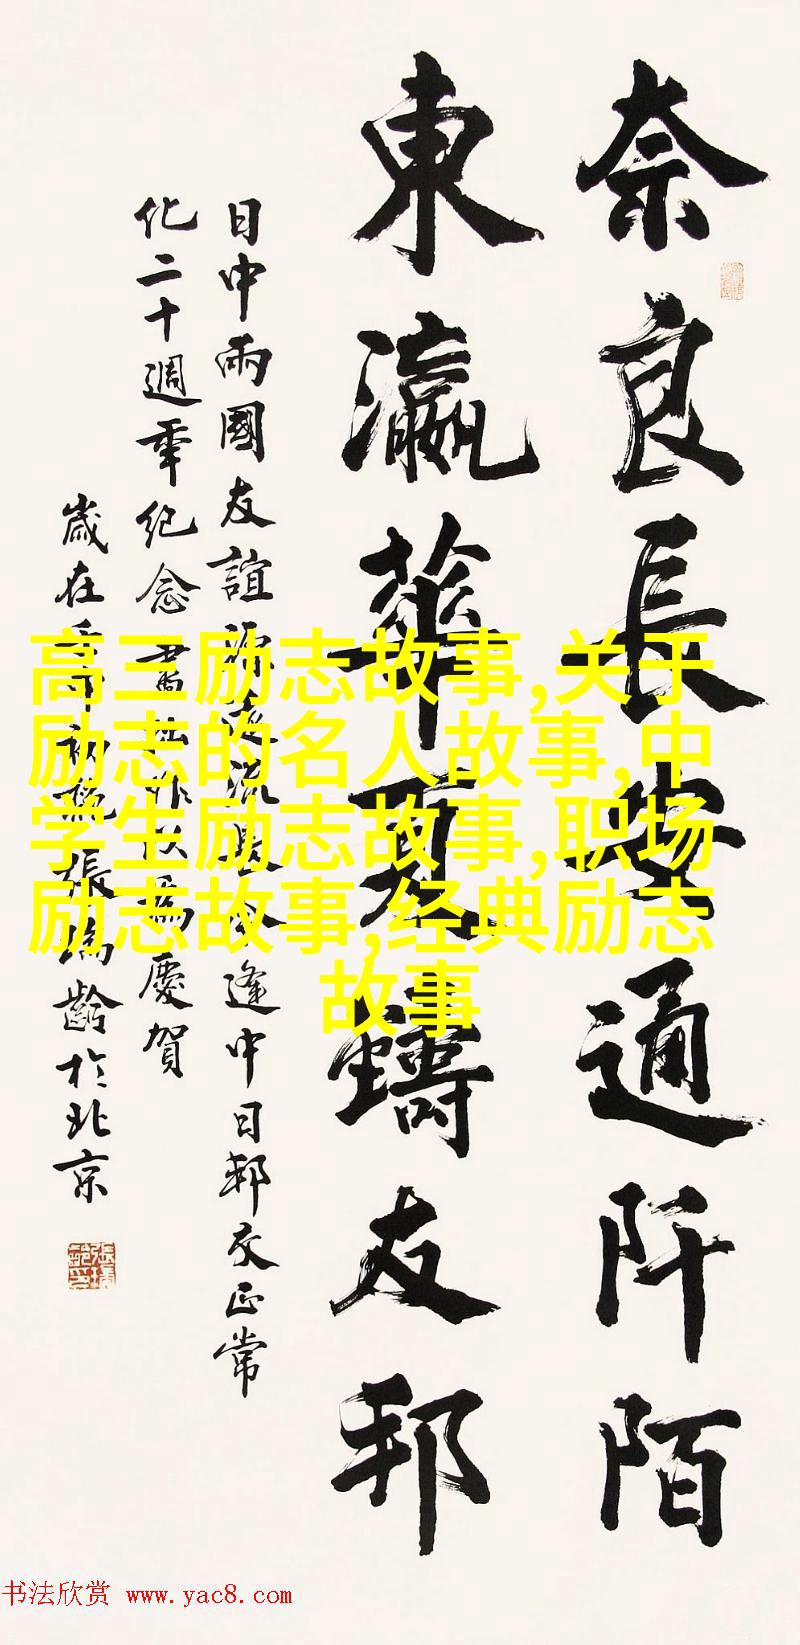 奈良長安通阡陌
東瀛華夏鑄友邦
日中兩國友誼源遠流長今逢中日邦交正常
化二十週年紀念書拙作以爲慶賀
歲在壬申初秋張瑞齡於北京
高三励志故事,关于
励志的名人故事,中
学生励志故事,职场
励志故事,经典励志
故事
书法欣赏 www.yac8.com